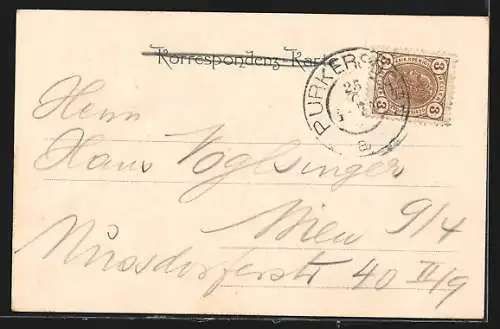 Korrespondenz-Karte
PURKERS
25
3 3
3 3
Herrn
Hans Voglsinger
Wien 9/4
Nussdorferstr 40 II/9